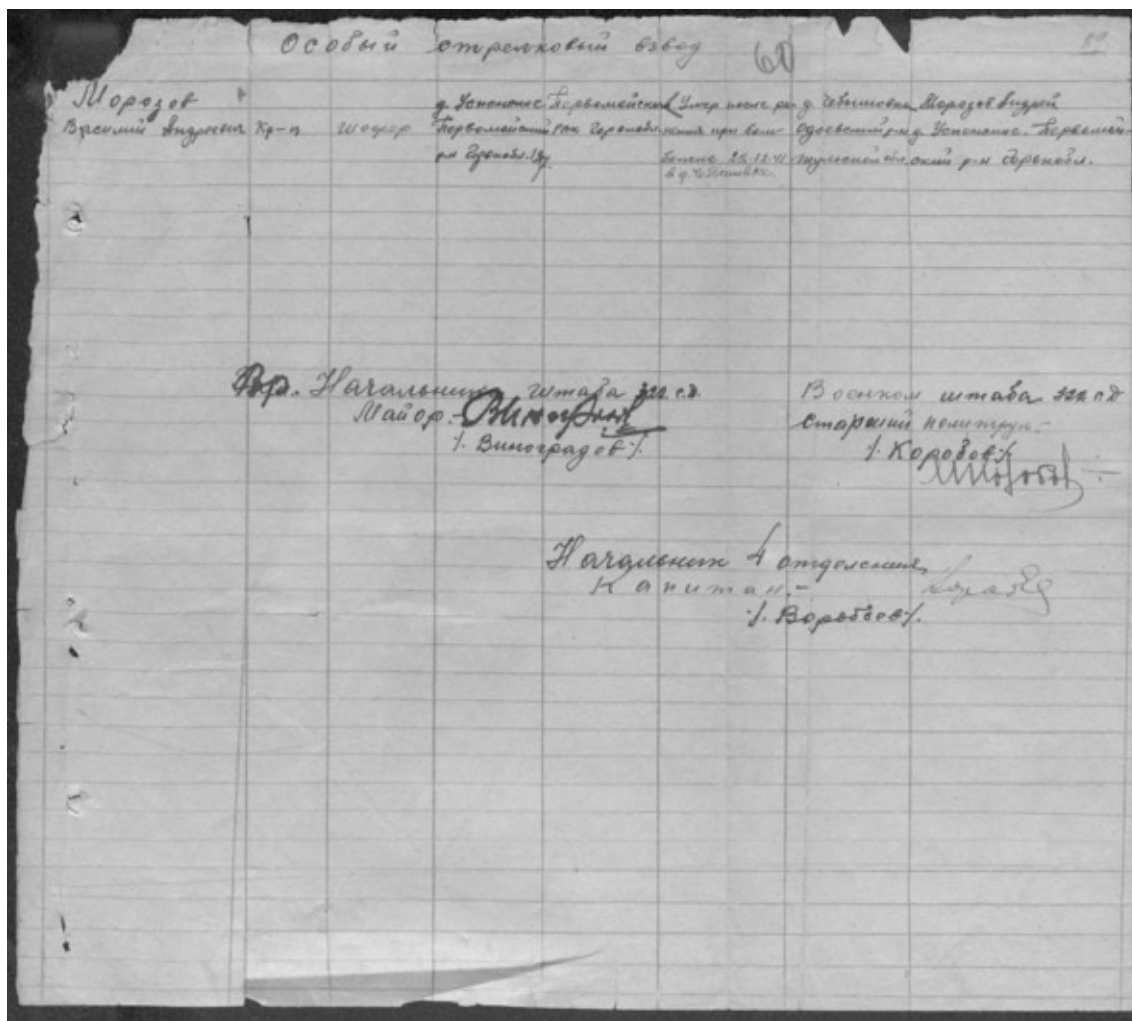 Особый стрелковый взвод 60
Морозов
Василий Андреевич Кр-ц шофер
д. Успенское Первомайский р-н Горьк.обл.
Первомайский РВК Горьк.обл.
Умер после ранения при бомбежке 28-12-41 в д.
д. Одоевский р-н Тульской обл.
Морозов Андрей
д. Успенское Первомайский р-н Горьк.обл.
Вр. Начальник штаба 322 с.д.
Майор.-
/. Виноградов /.
Военком штаба 322 сд
Старший политрук.-
/. Коробов /.
Начальник 4 отделения
Капитан.-
/. Воробьев /.